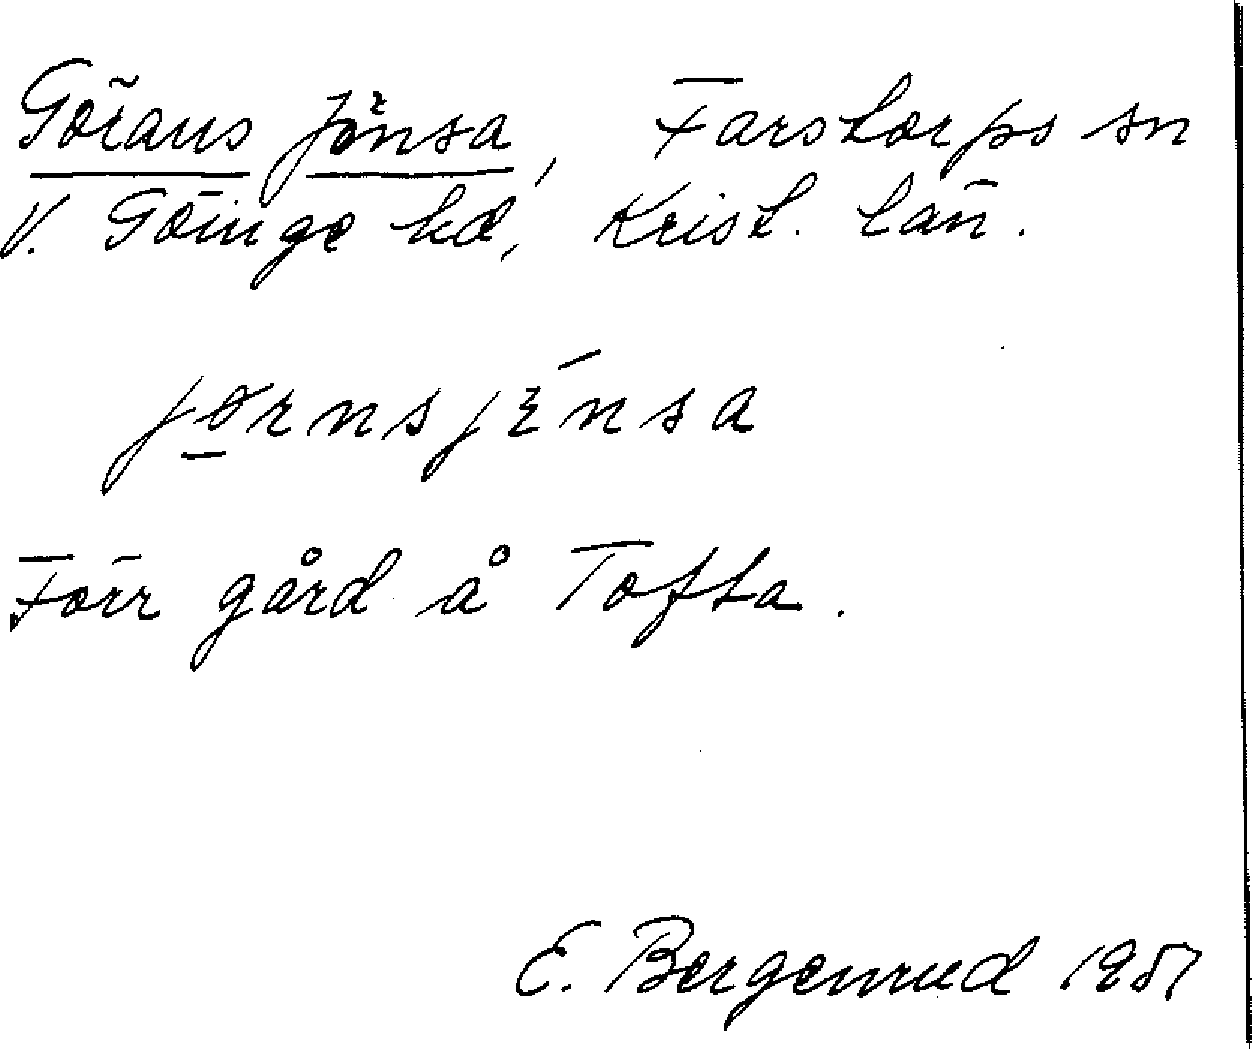 Görans Jönsa, Farstorps sn
V. Göinge hd, Krist. län.
jørnsjɛ́nsa
Förr gård å Tofta.
E. Bergenrud 1951